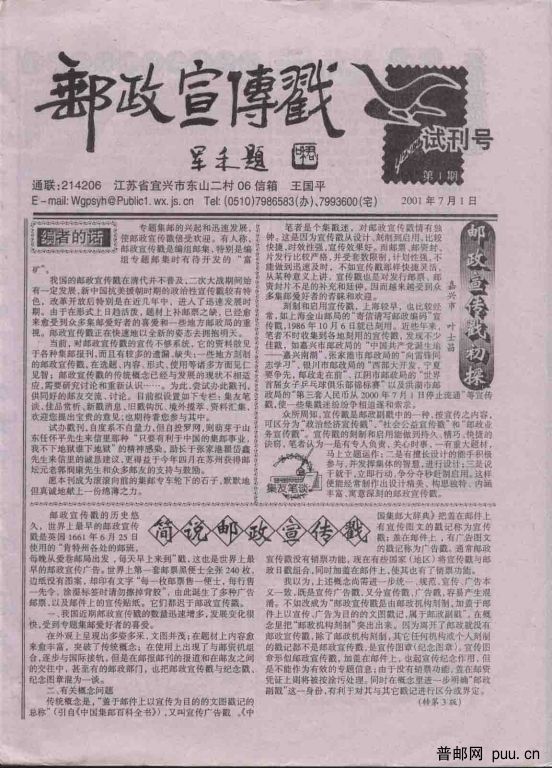 郵政宣傳戳
试刊号
第1期
通联:214206 江苏省宜兴市东山二村06信箱 王国平
E-mail: Wgpsyh@Public1.wx.js.cn Tel: (0510)7986583(办)、7993600(宅)
2001年7月1日
编者的话
专题集邮的兴起和迅速发展,
使邮政宣传戳倍受欢迎。有人称,
邮政宣传戳是编组邮集,特别是编
组专题邮集时有待开发的“富
矿”。
我国的邮政宣传戳在清代并不普及、二次大战期间始
有一定发展,新中国抗美援朝时期的政治性宣传戳较有特
色,改革开放后特别是在近几年中,进入了迅速发展时
期。由于在形式上日趋活泼,题材上补邮票之缺,已经愈来
愈受到众多集邮爱好者的喜爱和一些地方邮政局的重
视。邮政宣传戳正在快速地以全新的姿态去拥抱明天。
当前,对邮政宣传戳的宣传不够系统,它的资料散见
于各种集邮报刊,而且有较多的遗漏、缺失;一些地方刻制
的邮政宣传戳,在选题、内容、形式、使用等诸多方面见仁
见智;邮政宣传戳的传统概念已经与发展的现状不相适
应,需要研究讨论和重新认识……。为此,尝试办此戳刊,
供同好的邮友交流、讨论。目前拟设如下专栏:集友笔
谈、佳品赏析、新戳消息、旧戳钩沉、域外撷萃、资料汇集,
欢迎您提出宝贵的意见,也期待着您参与其中。
试办戳刊,自度系不自量力,但自投罗网,则萌芽于山
东任怀平先生来信里那种“只要有利于中国的集邮事业,
我不下地狱谁下地狱”的精神感染,助长于张家港瞿岱鑫
先生来信里的诚恳建议,更得益于今年四月在苏州获得邮
坛元老郭润康先生和众多邮友的支持与鼓励。
愿本刊成为滚滚向前的集邮专车轮下的石子,默默地
但真诚地献上一份绵薄之力。
邮政宣传戳初探
嘉兴市 叶士昌
笔者是个集戳迷,对邮政宣传戳情有独
钟。这是因为宣传戳从设计、刻制到启用,比较
快捷,时效性强,宣传效果好。而邮票、邮资封、
片发行比较严格,并受套数限制,计划性强,不
能做到迅速发时,不如宣传戳那样快捷灵活,
从某种意义上讲,宣传戳也是对发行邮票、邮
资封片不足的补充和延伸,因而越来越受到众
多集邮爱好者的青睐和欢迎。
刻制和启用宣传戳,上海较早,也比较经
常,如上海金山邮局的“寄信请写邮政编码”宣
传戳,1986年10月6日就已刻用。近些年来,
笔者不时收集到各地刻用的宣传戳,发现不少
佳戳,如嘉兴市邮政局的“中国共产党诞生地
—嘉兴南湖”、张家港市邮政局的“向雷锋同
志学习”、银川市邮政局的“西部大开发,宁夏
要争先,邮政走在前”、江阴市邮政局的“世界
首届女子乒乓球俱乐部锦标赛”以及洪湖市邮
政局的“第三套人民币从2000年7月1日停止流通”等宣传
戳,使一些集戳迷纷纷争相追逐和索求。
众所周知,宣传戳是邮政副戳中的一种,按宣传之内容,
可区分为“政治经济宣传戳”、“社会公益宣传戳”和“邮政业
务宣传戳”。宣传戳的刻制和启用能做到持久、精巧、快捷的
诀窍,笔者认为:一是有专人负责,关心时事,一有重大题材,
马上立题运作;二是有擅长设计的能手积极
参与,并发挥集体的智慧,进行设计;三是说
干就干,立即行动,争分夺秒赶制启用。这样
便能经常制作出设计精美、构思独特、内涵
丰富、寓意深刻的邮政宣传戳。
集友笔谈
简说邮政宣传戳
邮政宣传戳的历史悠
久,世界上最早的邮政宣传
戳是英国1661年6月25日
使用的“肯特州各处的邮班,
每晚从爱巷邮局出发,每天早上来到”戳,这也是世界上最
早的邮政宣传广告。世界上第一套邮票黑便士全张240枚,
边纸没有图案,却印有文字“每一枚邮票售一便士,每行售
一先令。涂湿标签时请勿擦掉背胶”,由此诞生了多种广告
邮票,以及邮件上的宣传贴纸。它们都迟于邮政宣传戳。
一、我国近期邮政宣传戳的数量迅速增多,发展变化很
快,受到专题集邮爱好者的喜爱。
在外观上呈现出多姿多采,文图并茂;在题材上内容愈
来愈丰富,突破了传统概念;在使用上出现了与邮资机组
合,逐步与国际接轨,但是在邮报邮刊的报道和在邮友之间
的交往中,甚至有的邮政部门,也把邮政宣传戳与纪念戳、
纪念图章混为一谈。
二、有关概念问题
传统概念是,“盖于邮件上以宣传为目的的文图戳记的
总称”(引自《中国集邮百科全书》),又叫宣传广告戳。《中
国集邮大辞典》把盖在邮件上
有宣传图文的戳记称为宣传
戳;盖在邮件上,有广告图文
的戳记称为广告戳。通常邮政
宣传戳没有销票功能,现在有些国家(地区)将宣传戳与邮
政日戳组合,同时加盖在邮件上,使其也有了销票功能。
我以为,上述概念尚需进一步统一、规范,宣传、广告本
义一致,既是宣传广告戳,又分宣传戳、广告戳,容易产生混
淆。不如改成为“邮政宣传戳是由邮政机构刻制,加盖于邮
件上以宣传、广告为目的的文图戳记,属于邮政副戳”,在概
念里把“邮政机构刻制”突出出来。因为离开了邮政就没有
邮政宣传戳,除了邮政机构刻制,其它任何机构或个人刻制
的戳记都不是邮政宣传戳,是宣传图章(纪念图章)。宣传图
章形似邮政宣传戳,加盖在邮件上,也起宣传纪念作用,但
是不能作为有效的专题信息;由于没有销票功能,盖在邮资
凭证上则将被按涂污处理。同时在概念里进一步明确“邮政
副戳”这一身份,有利于对其与其它戳记进行区分或界定。
(转第3版)
普邮网 puu.cn